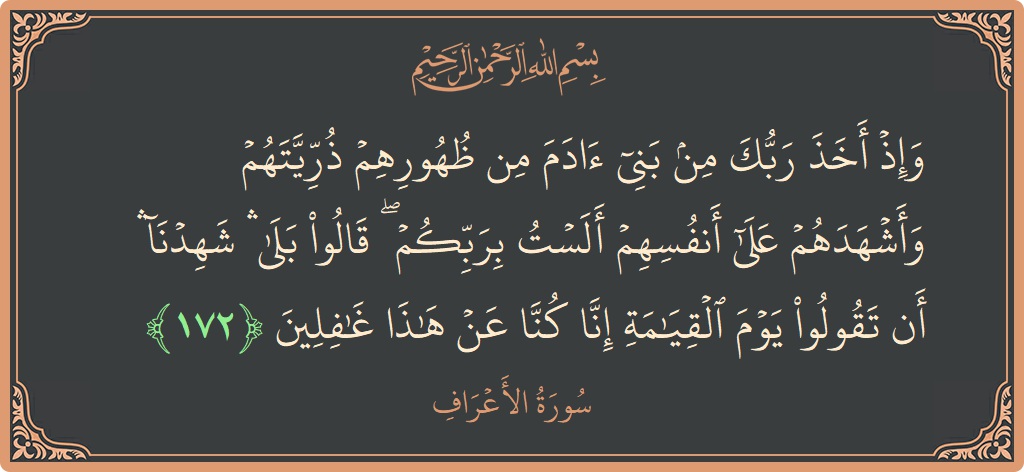 بِسْمِ اللَّهِ الرَّحْمَٰنِ الرَّحِيمِ
وَإِذْ أَخَذَ رَبُّكَ مِنۢ بَنِىٓ ءَادَمَ مِن ظُهُورِهِمْ ذُرِّيَّتَهُمْ
وَأَشْهَدَهُمْ عَلَىٰٓ أَنفُسِهِمْ أَلَسْتُ بِرَبِّكُمْ ۖ قَالُوا۟ بَلَىٰ ۛ شَهِدْنَآ ۛ
أَن تَقُولُوا۟ يَوْمَ ٱلْقِيَـٰمَةِ إِنَّا كُنَّا عَنْ هَـٰذَا غَـٰفِلِينَ ﴿١٧٢﴾
سُورَةُ الأَعْرَافِ